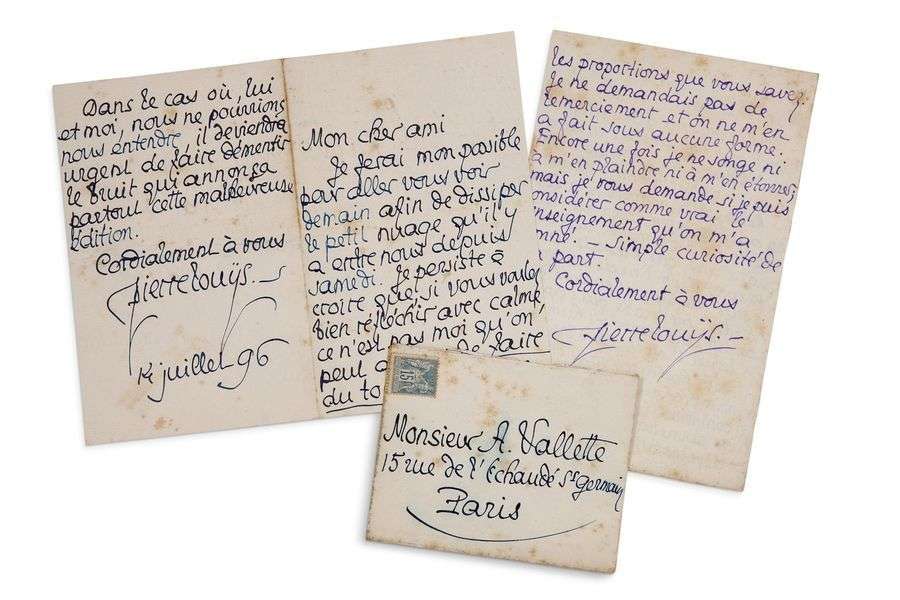 Dans le cas où, lui
et moi, nous ne pourrions
nous entendre, il deviendra
urgent de faire démentir
le bruit qui annonça
partout cette malheureuse
édition.
Cordialement à vous
Pierre Louÿs.
juillet 96
Mon cher ami
Je ferai mon possible
pour aller vous voir
demain afin de dissiper
le petit nuage qu'il y
a entre nous depuis
samedi. Je persiste à
croire que, si vous voulez
bien réfléchir avec calme
ce n'est pas moi qu'on
peut
de faire
du
les proportions que vous savez.
Je ne demandais pas de
remerciement et on ne m'en
a fait sous aucune forme.
Encore une fois je ne songe ni
à m'en plaindre ni à m'en étonner,
mais je vous demande si je puis
considérer comme vrai le
enseignement qu'on m'a
nné. – Simple curiosité de
part.
Cordialement à vous
Pierre Louÿs. –
15
Monsieur A. Vallette
15 rue de l'Échaudé St Germain
Paris